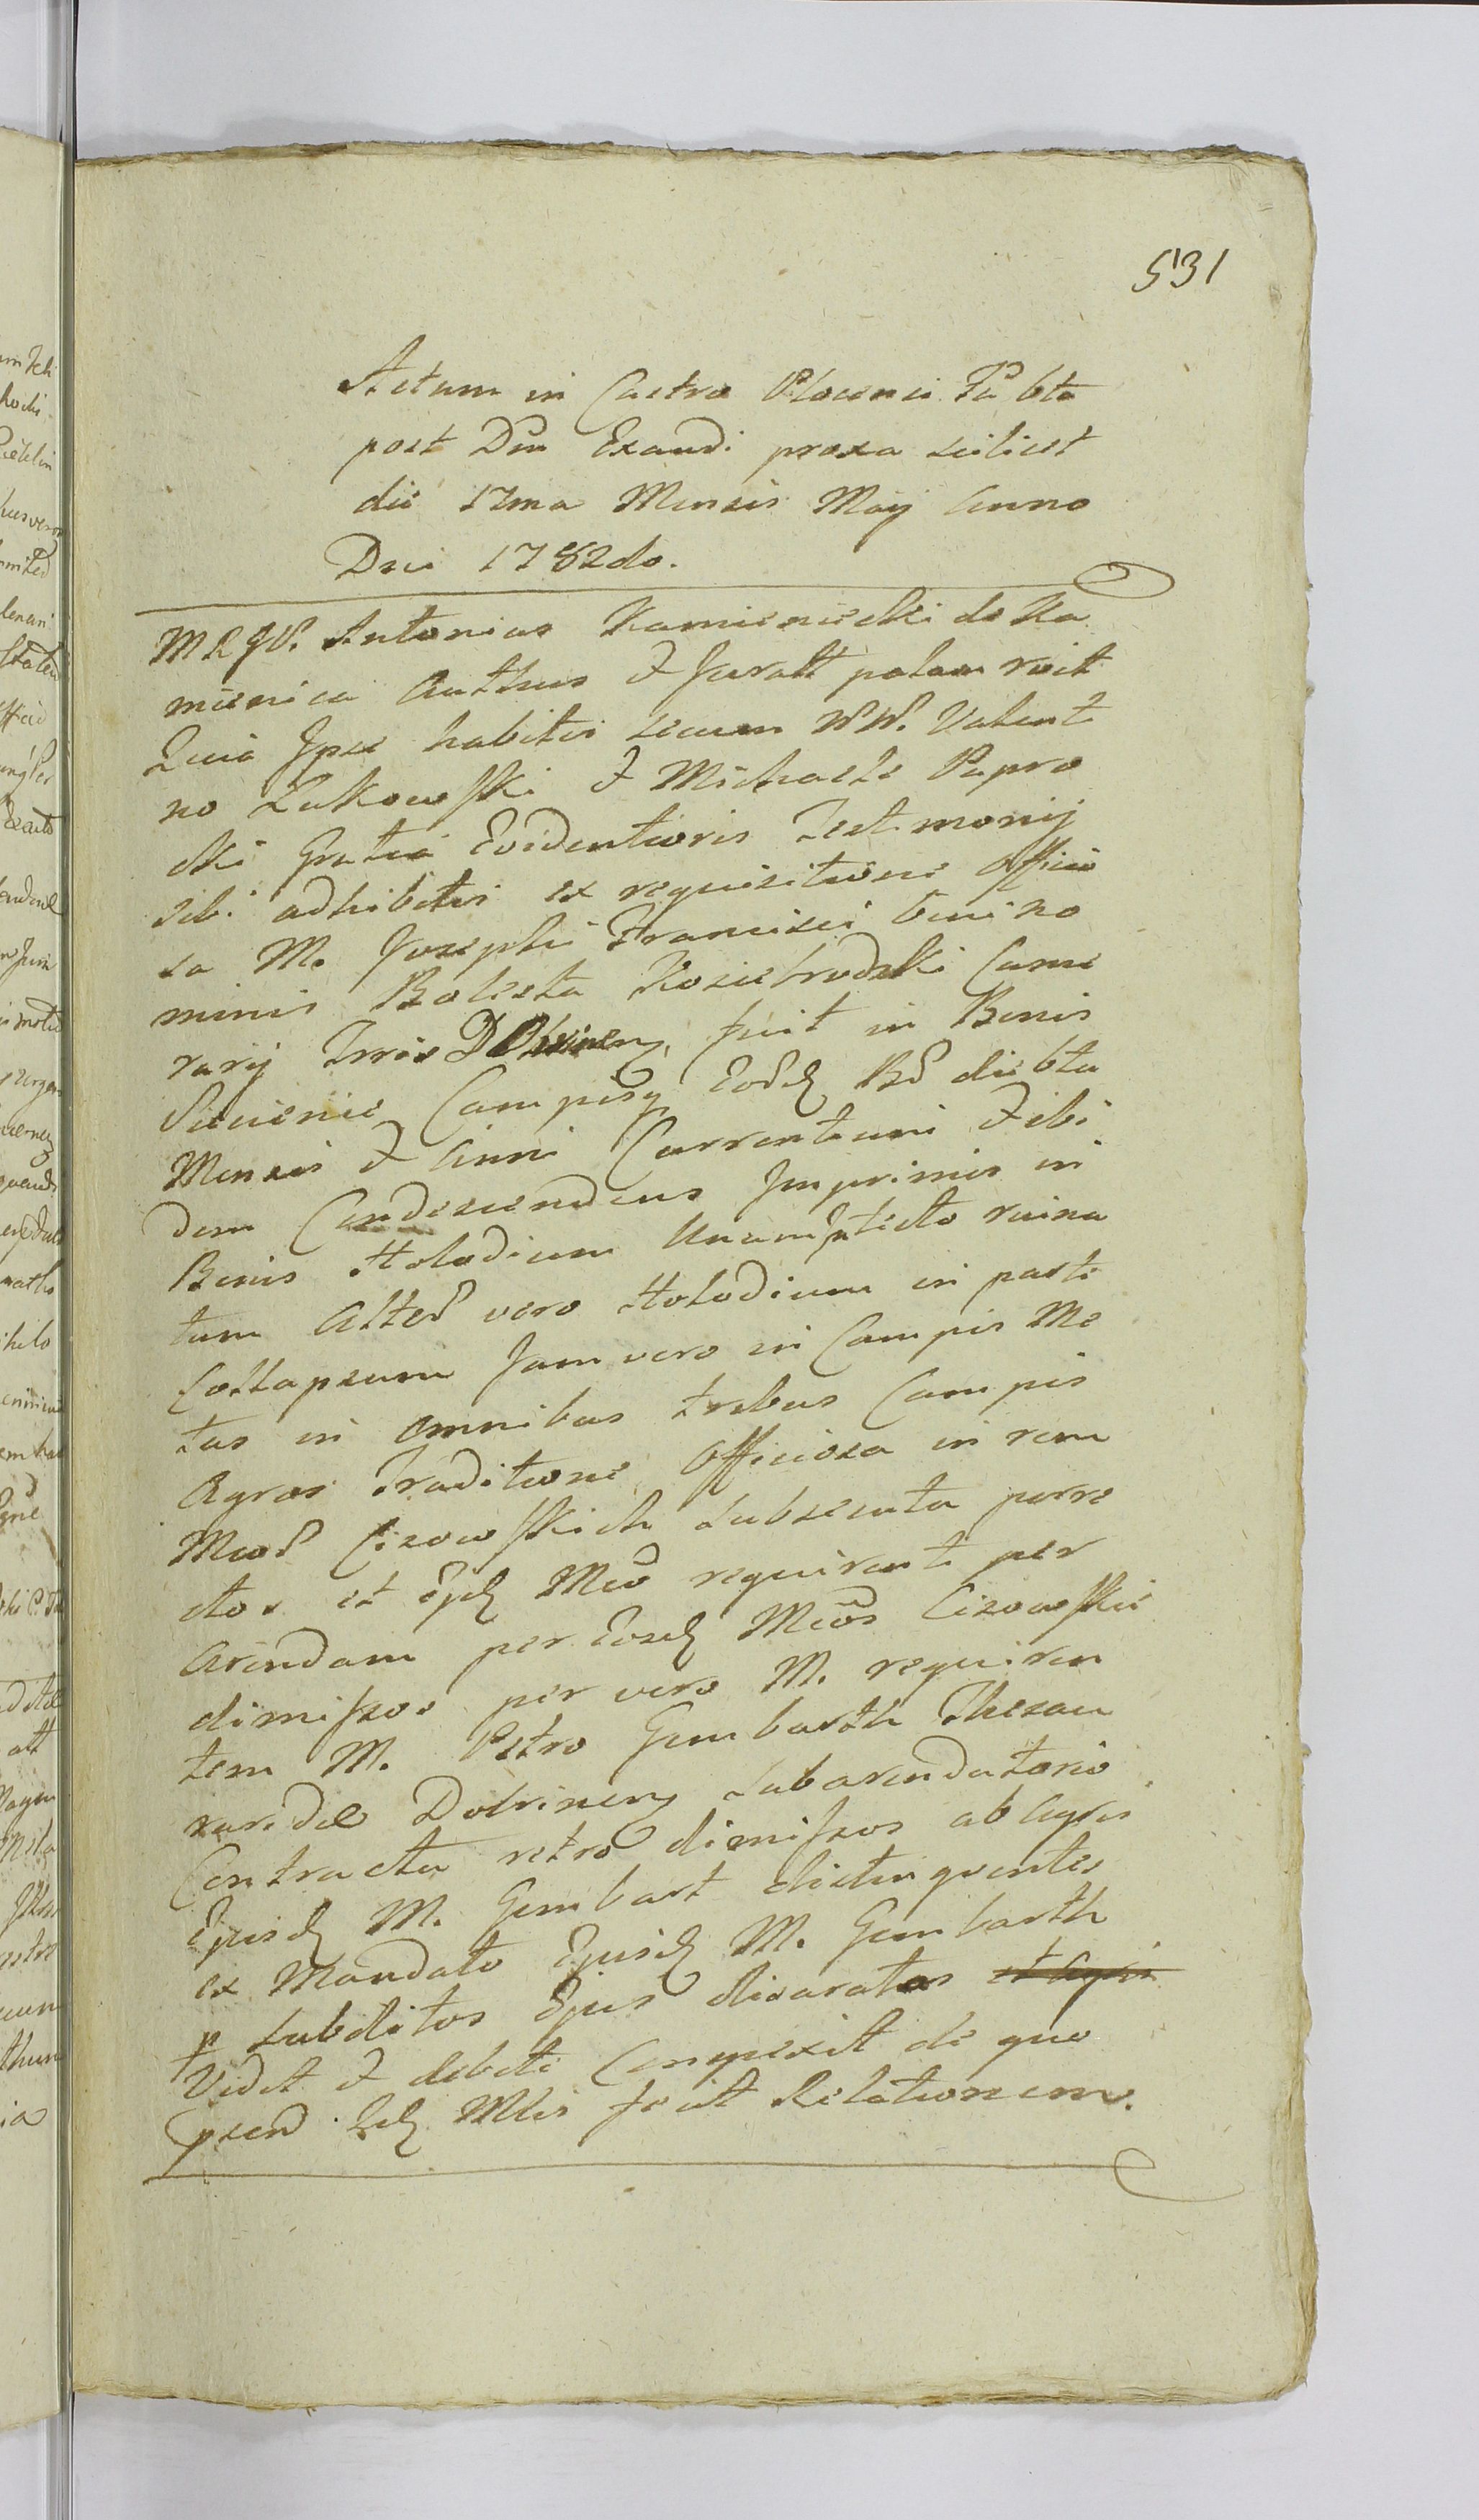 531
Actum in Castro Plocensi Fa 6ta
post Dm Exaudi proxa scilicet
die 17ma Mensis Maij Anno
Dni 1782do.
MRGP. Antonius Kamieniecki de Ka
mienica Authus & Juratt palam recit
Quia Ipse habitis secum NN. Valenti
no Łukowski & Michaele Papro
cki Gratia Evidentioris Testimonij
sibi adhibitis ex requisitione Officio
sa M. Josephi Francisci bini no
minis Bolesta Koziebrodzki Came
rarij Trris Dobrinen, fuit in Bonis
Siecienie Campisq Eord Bd die 6ta
Mensis & Anni Currentium & ibi
dem Condescendens Imprimis in
Bonis Holodium Unum tecto ruina
tum Alterd vero Holodium in parte
Collapsum Jam vero in Campis Me
tas in omnibus tribus Campis
Agros Traditione Officiosa in rem
Mcord Cissowskich subsecuta porre
ctos et Mco requirenti per
Arendam per Eosd Mcos Cissowskie
dimissos per vero M. requiren
tem M. Petro Gembarth Thesau
raride Dobrinen, subarendatorio
Contractu retro dimissos ab Agris
Ejusd M. Gembart distinguentes
ex Mandato Ejusd M. Gembarth
p subditos Ejus disaratos et Agri
Vidit & debite Conspexit de quo
psend Mlis fecit Relationem.